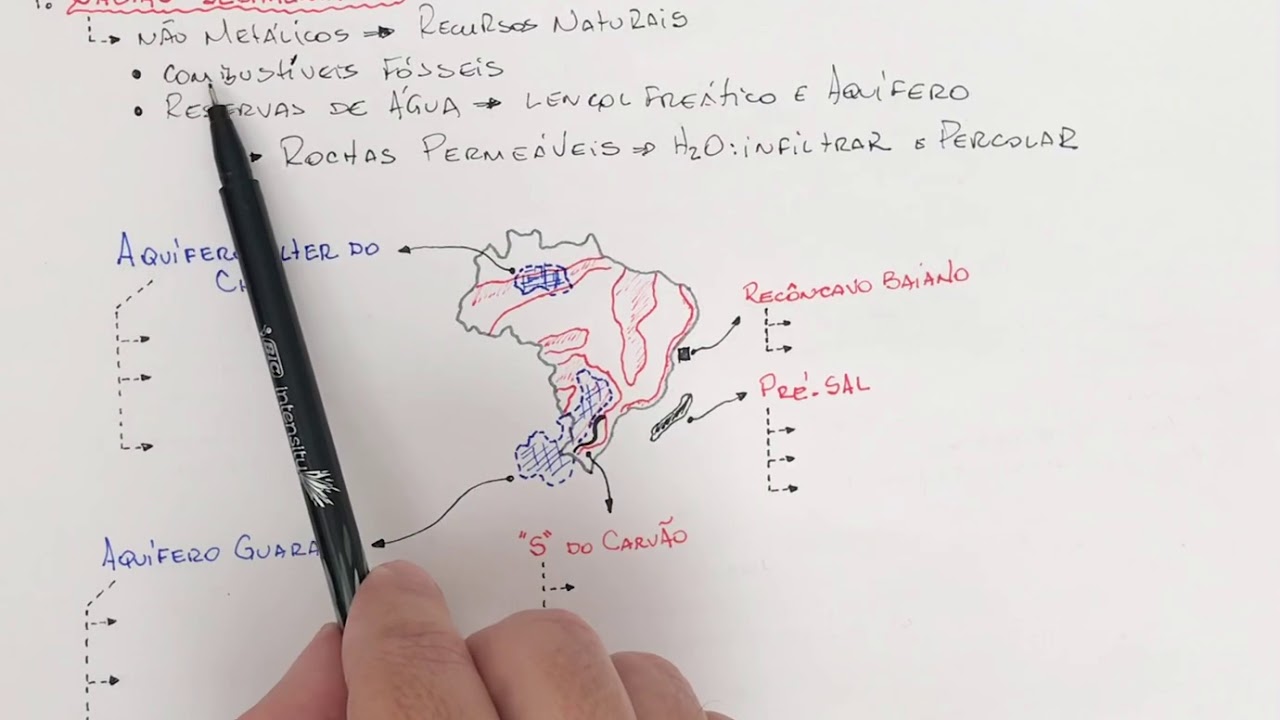 1.
NÃO METÁLICOS ⇒ RECURSOS NATURAIS
• COMBUSTÍVEIS FÓSSEIS
• RESERVAS DE ÁGUA → LENÇOL FREÁTICO E AQUÍFERO
ROCHAS PERMEÁVEIS ⇒ H2O: INFILTRAR E PERCOLAR
RECÔNCAVO BAIANO
PRÉ-SAL
"S" DO CARVÃO
BIC Intensity